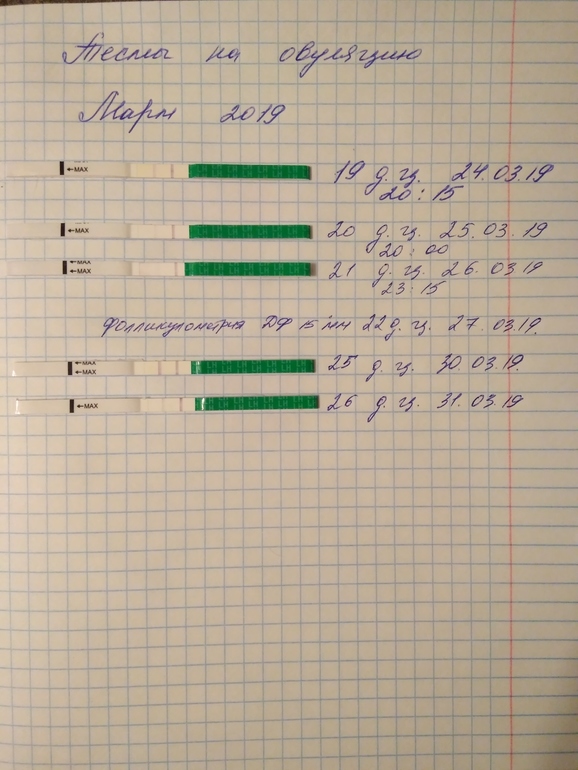 Тесты на овуляцию
Март 2019
←MAX
19 д.ц. 24.03.19
20:15
←MAX
20 д.ц. 25.03.19
20:00
←MAX
←MAX
21 д.ц. 26.03.19
23:15
фолликулометрия ДФ 15 мм 22 д.ц. 27.03.19.
←MAX
←MAX
25 д.ц. 30.03.19.
←MAX
26 д.ц. 31.03.19